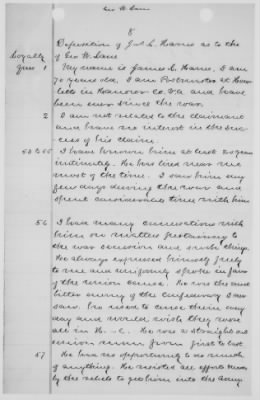 Geo W. Lane
8
Deposition of Jas L. Hanes as to the
Loyalty of Geo W. Lane
Ques 1 My name is James L. Hanes, I am
70 years old, I am Postmaster at
in Hanover Co. Va and have
been ever since the war.
2 I am not related to the claimant
and have no interest in the suc-
cess of his claim.
53 to 55 I have known him at least 20 years
intimately. He has lived near me
most of the time. I saw him every
few days during the war and
spent considerable time with him
56 I had many conversations with
him on matters pertaining to
the war secession and such things.
He always expressed himself freely
to me and uniformly spoke in favor
of the Union cause. He was the most
bitter enemy of the Confederacy I ever
saw. He used to curse them every
day and would wish they were
all in H--l. He was a straight out
Union man from first to last
57 He had no opportunity to do much
of anything. He resisted all efforts made
by the rebels to get him into the army